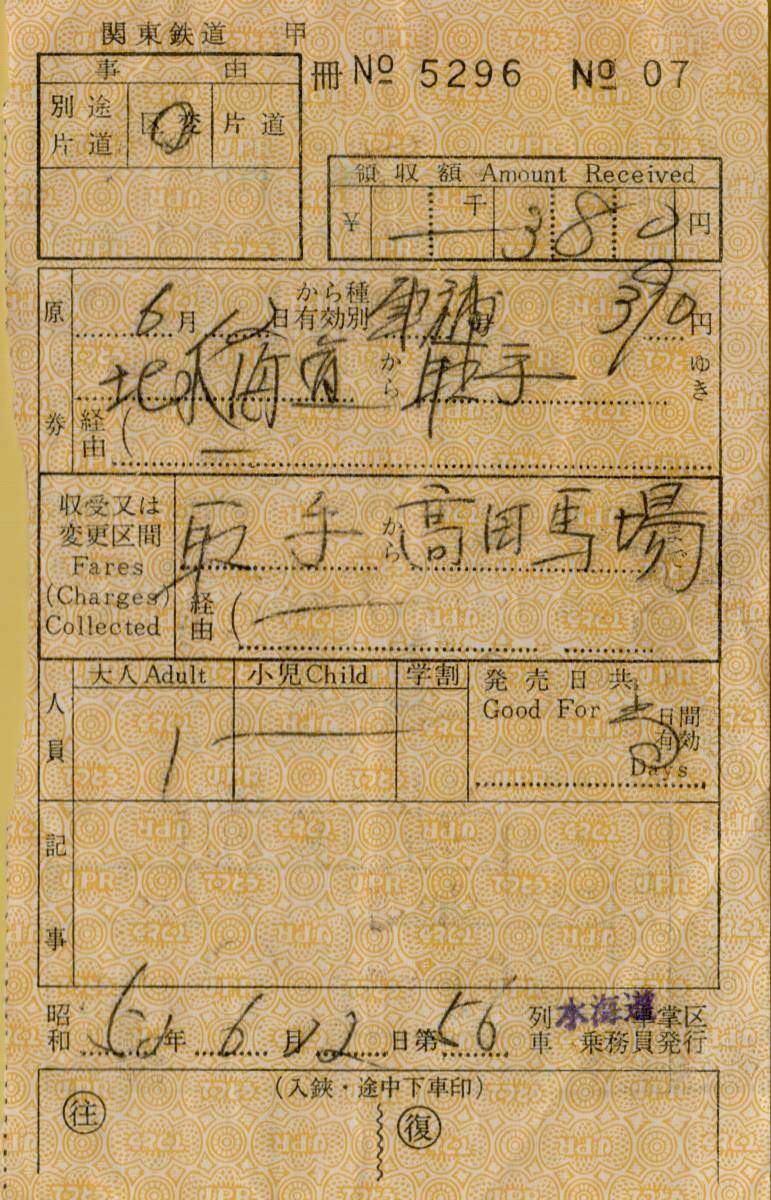 関東鉄道 甲
冊 No 5296 No 07
事由
別途片道 区変 片道
領収額 Amount Received
¥ 千 380 円
原券
6月12日から有効 種別 車補 390円
北水海道から取手ゆき
経由(
収受又は変更区間
Fares
(Charges)
Collected
取手から高田馬場まで
経由(
人員
大人 Adult 小児 Child 学割
1
発売日共
Good For
日間有効
Days
記事
昭和 年 6月12日第56列車 水海道車掌区乗務員発行
(入鋏・途中下車印)
往 復